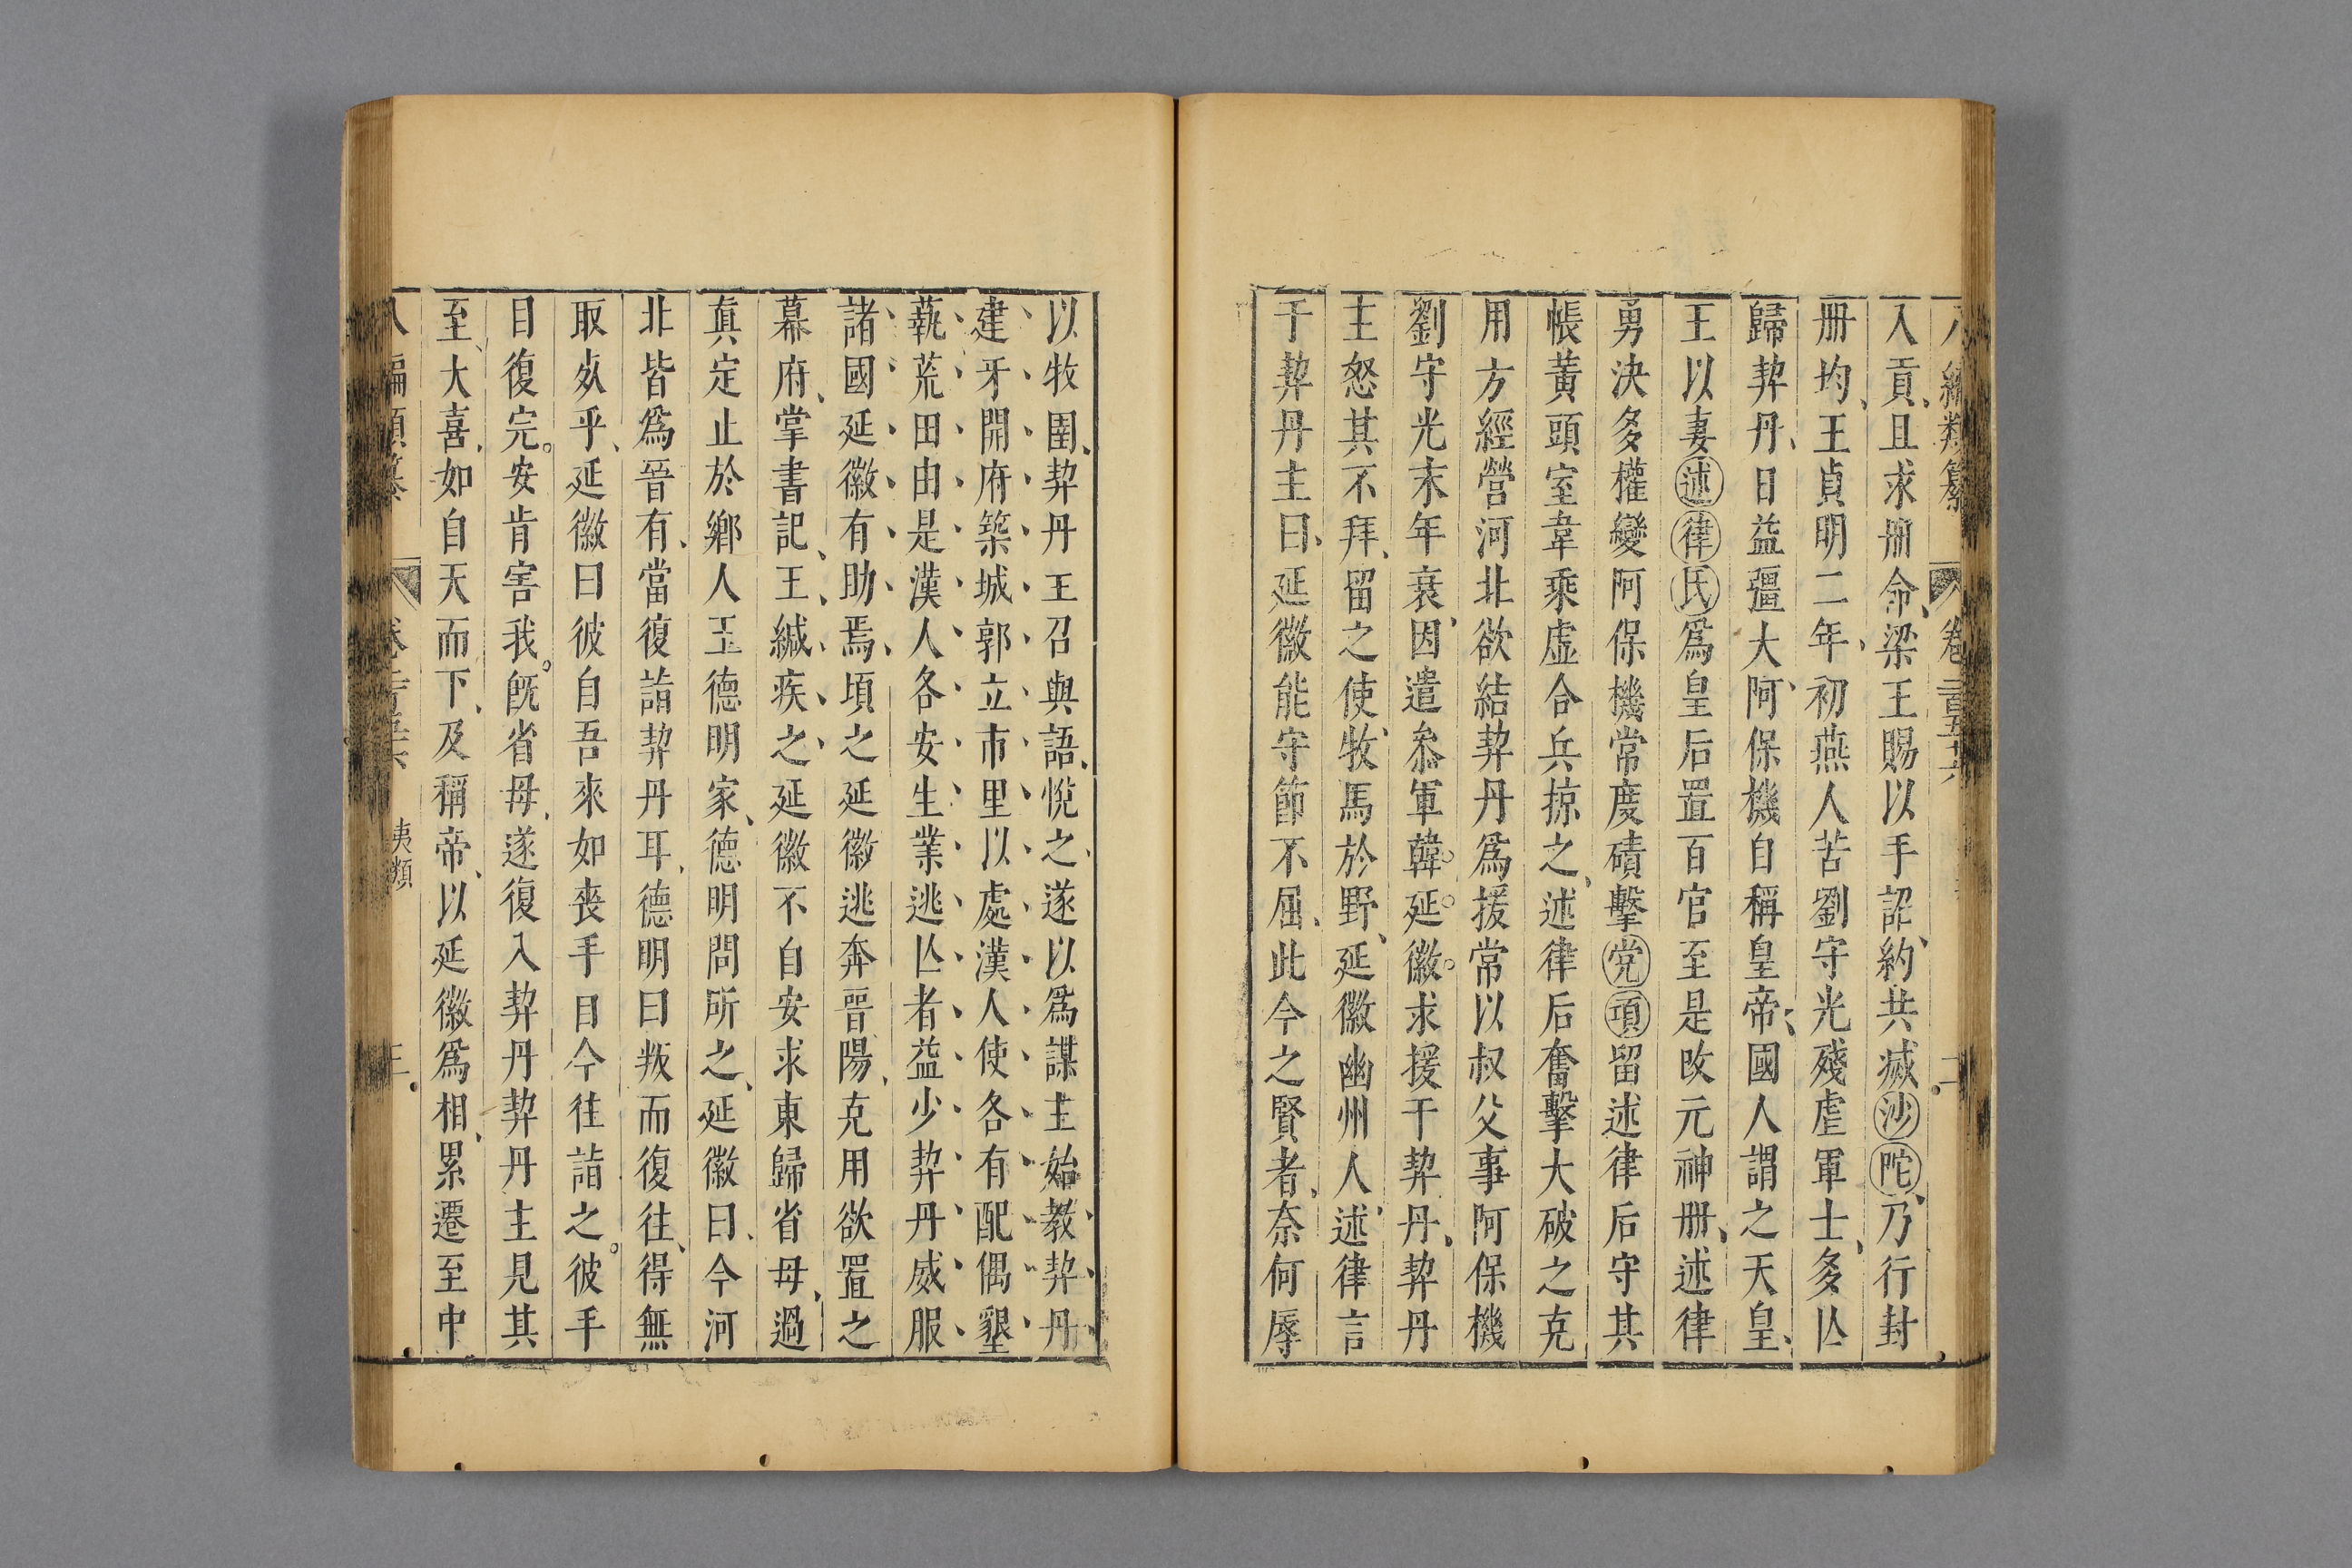 八編類纂 卷二百五十六 二
入貢且求册命梁王賜以手詔約共滅沙陀乃行封
册均王貞明二年初燕人苦劉守光殘虐軍士多亾
歸契丹日益彊大阿保機自稱皇帝國人謂之天皇
王以妻述律氏爲皇后置百官至是改元神册述律
勇決多權變阿保機常度磧擊党項留述律后守其
帳黃頭室韋乘虚合兵掠之述律后奮擊大破之克
用方經營河北欲結契丹爲援常以叔父事阿保機
劉守光末年衰因遣叅軍韓延徽求援干契丹契丹
主怒其不拜留之使牧馬於野延徽幽州人述律言
于契丹主曰延徽能守節不屈此今之賢者奈何辱
以牧圉契丹王召與語悅之遂以爲謀主始教契丹
建牙開府築城郭立市里以處漢人使各有配偶墾
蓺荒田由是漢人各安生業逃亾者益少契丹威服
諸國延徽有助焉頃之延徽逃奔晉陽克用欲置之
幕府掌書記王緘疾之延徽不自安求東歸省母過
眞定止於鄉人王德明家德明問所之延徽曰今河
北皆爲晉有當復詣契丹耳德明曰叛而復往得無
取𡚁乎延徽曰彼自吾來如喪手目今往詣之彼手
目復完安肯害我旣省母遂復入契丹契丹主見其
至大喜如自天而下及稱帝以延徽爲相累遷至中
八編類纂 卷二百五十六 夷類 三